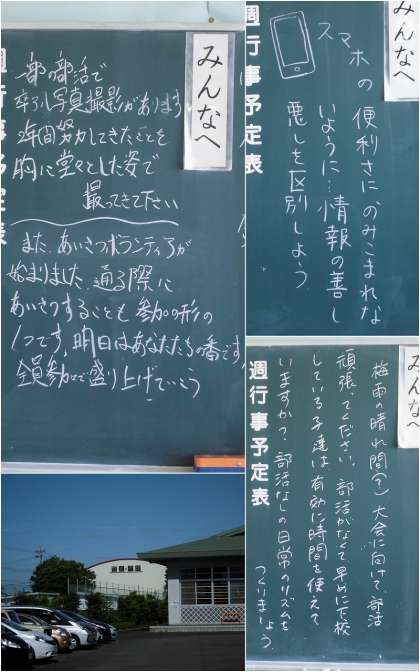 みんなへ
一部の部活で
卒アル写真撮影があります
2年間努力してきたことを
胸に堂々とした姿で
撮ってきて下さい
また、あいさつボランティアが
始まりました。通る際に
あいさつすることも参加の形の
1つです。明日はあなたたちの番です
全員参加で盛り上げていこう
みんなへ
スマホの便利さに、のみこまれな
いように…情報の善し
悪しを区別しよう
週行事予定表
みんなへ
梅雨の晴れ間(?)大会に向けて、部活
頑張ってください。部活がなくて早めに下校
している子達は、有効に時間を使えて
いますか?部活なしの日常のリズムを
つくりましょう。
週行事予定表